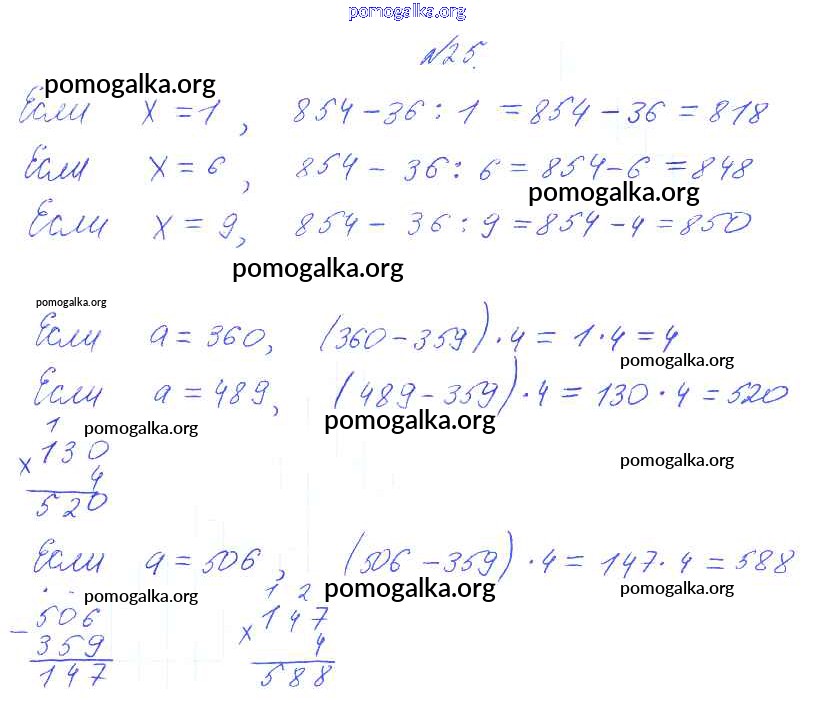 pomogalka.org
№25.
pomogalka.org
Если x = 1, 854 - 36 : 1 = 854 - 36 = 818
Если x = 6, 854 - 36 : 6 = 854 - 6 = 848
pomogalka.org
Если x = 9, 854 - 36 : 9 = 854 - 4 = 850
pomogalka.org
pomogalka.org
Если a = 360, (360 - 359) · 4 = 1 · 4 = 4
pomogalka.org
Если a = 489, (489 - 359) · 4 = 130 · 4 = 520
1 pomogalka.org pomogalka.org
× 130
pomogalka.org
4
520
Если a = 506, (506 - 359) · 4 = 147 · 4 = 588
. . pomogalka.org 1 2 pomogalka.org pomogalka.org
- 506 × 147
359 4
147 588